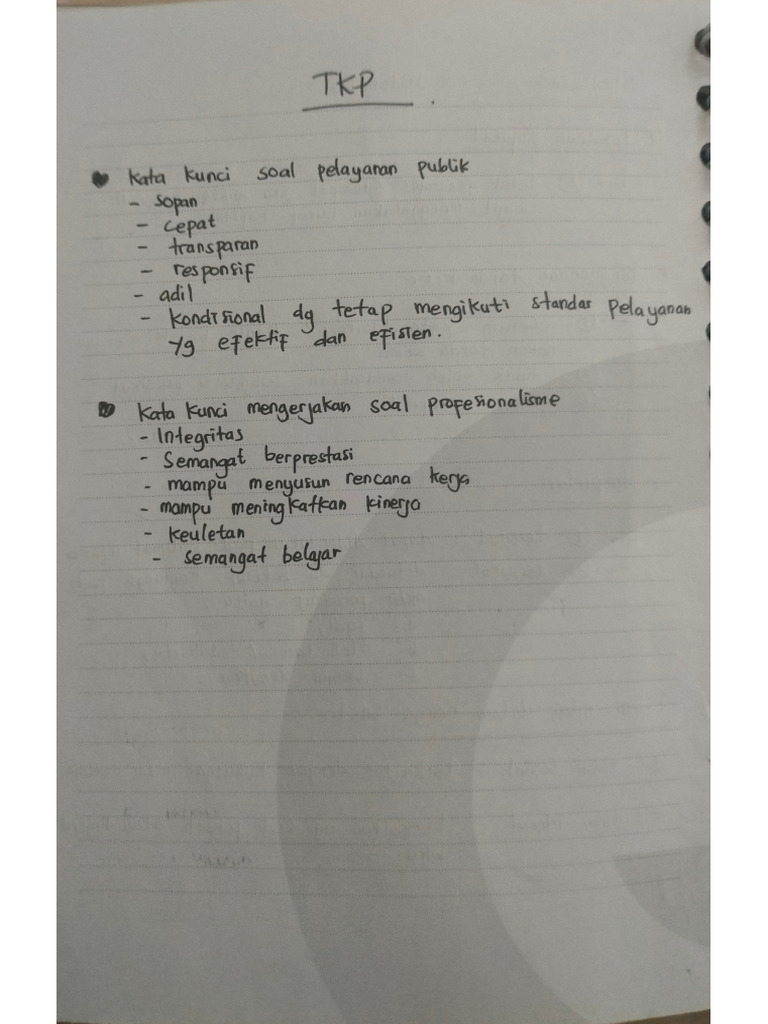 TKP
Kata kunci soal pelayanan publik
- sopan
- cepat
- transparan
- responsif
- adil
- kondisional dg tetap mengikuti standar pelayanan
yg efektif dan efisien.
Kata kunci mengerjakan soal profesionalisme
- Integritas
- Semangat berprestasi
- mampu menyusun rencana kerja
- mampu meningkatkan kinerja
- keuletan
- semangat belajar